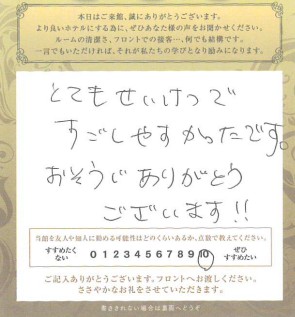 本日はご来館、誠にありがとうございます。
より良いホテルにする為に、ぜひあなた様の声をお聞かせください。
ルームの清潔さ、フロントでの接客…、何でも結構です。
一言でもいただければ、それが私たちの学びとなり励みになります。
とてもせいけつで
すごしやすかったです。
おそうじありがとう
ございます!!
当館を友人や知人に勧める可能性はどのくらいあるか、点数で教えてください。
すすめたくない 0 1 2 3 4 5 6 7 8 9 10 ぜひすすめたい
ご記入ありがとうございます。フロントへお渡しください。
ささやかなお礼をさせていただきます。